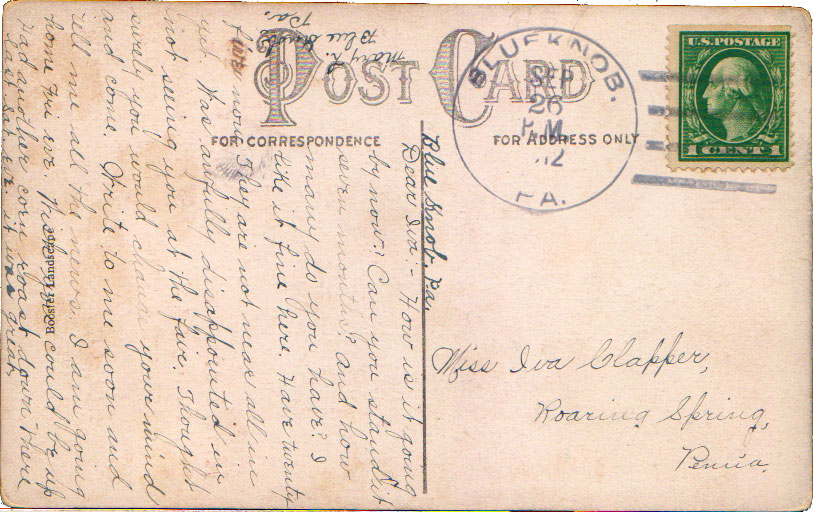 POST CARD
FOR CORRESPONDENCE
FOR ADDRESS ONLY
BLUE KNOB.
SEP
26
P.M.
'12
PA.
U.S. POSTAGE
1 CENT 1
Miss Iva Clapper,
Roaring Spring,
Penna.
Blue Knob, Pa.
Dear Iva:- How is it going
by now? Can you stand it
seven months? And how
many do you have? I
like it fine here. Have twenty
five now. They are not near all in
yet. Was awfully disappointed in
not seeing you at the fare. Thought
surely you would change your mind
and come. Write to me soon and
tell me all the news. I am going
home Fri eve. Wish you could be up
Had another corn roast down there
last Sat. eve it was great.
Mary L.
Blue Knob,
Pa.